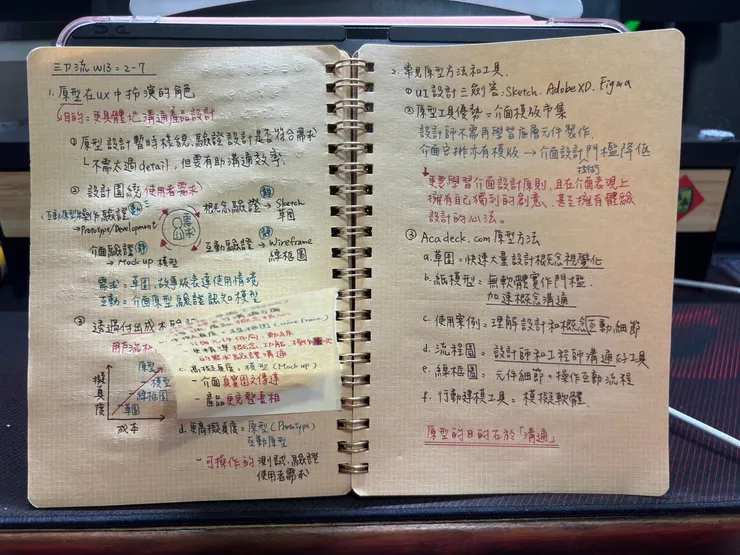 三刀流 W13 = 2-7
1. 原型在UX中扮演的角色
目的=更具體地溝通產品設計
① 原型設計暫時樣貌、驗證設計是否符合需求
└ 不需太過detail, 但要有助溝通效率.
② 設計圍繞使用者需求
互動原型 操作驗證
→ Prototype/Development
需求
概念驗證 → Sketch
靜
草圖
介面驗證 靜
→ Mock up 模型
互動驗證 → Wireframe
靜
線框圖
需求=草圖、故事版表達使用情境
互動=介面原型驗證認知模型
③ 透過付出成本
擬真度
原型
模型
線框圖
草圖
成本
(wireframe)
c. 高擬真度=模型(Mock up)
- 介面真實圖文傳達
- 產品更完整真相
d. 更高擬真度=原型(Prototype)
互動原型
- 可操作的測試、驗證
使用者需求
2. 常見原型方法和工具.
① UI設計三劍客: Sketch. AdobeXD. Figma
② 原型工具優勢=介面模版市集
設計師不需再學習底層元件製作.
介面已排亦有模版 → 介面設計門檻降低
技術
更要學習介面設計原則, 且在介面表現上
擁有自己獨到的創意、甚至擁有體驗
設計的心法.
③ Acadeck.com 原型方法
a. 草圖=快速大量設計概念視覺化
b. 紙模型=無軟體實作門檻.
加速概念溝通
c. 使用案例=理解設計和概念互動細節
d. 流程圖=設計師和工程師溝通好工具
e. 線框圖=元件細節+操作互動流程
f. 行動建模工具=模擬軟體.
原型的目的在於「溝通」